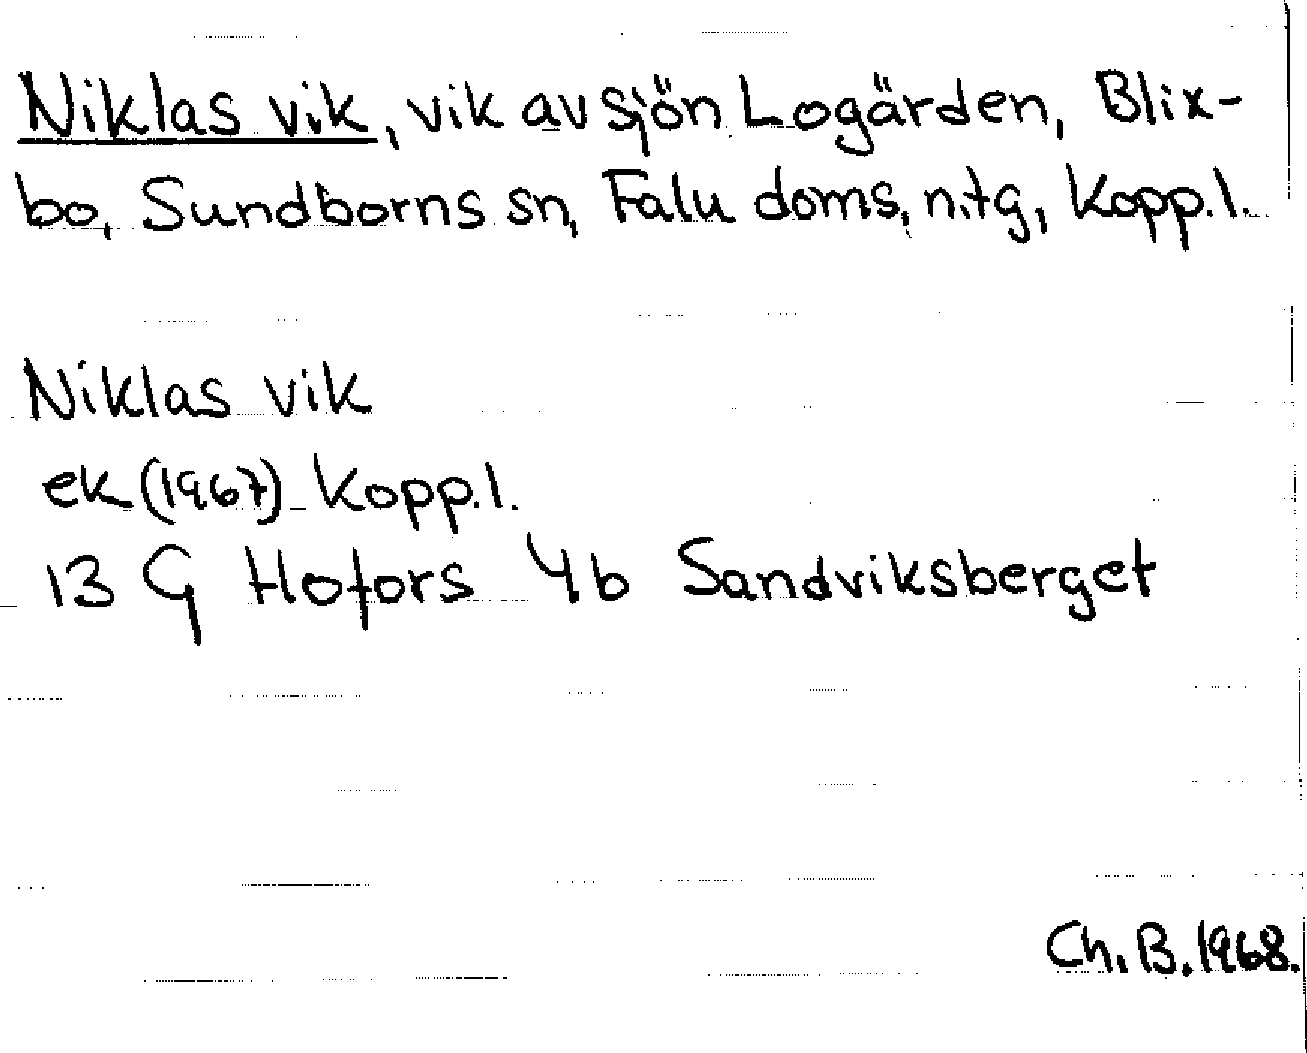 Niklas vik, vik av sjön Logärden, Blix-
bo, Sundborns sn, Falu doms, n.tg, Kopp.l.
Niklas vik
ek (1967) Kopp.l.
13 G Hofors 4b Sandviksberget
Ch. B. 1968.